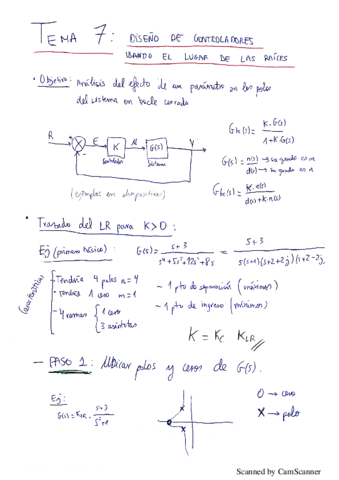 TEMA 7: DISEÑO DE CONTROLADORES
USANDO EL LUGAR DE LAS RAÍCES
• Objetivo: Análisis del efecto de un parámetro en los polos
del sistema en bucle cerrado
R
E
K
Controlador
G(s)
Sistema
Y
(ejemplos en diapositivas)
Gbc(s) = K·G(s) / 1+K·G(s)
G(s) = n(s) / d(s)
Gbc(s) = K·n(s) / d(s)+K·n(s)
• Trazado del LR para K>0:
Ej (primero básico): G(s) = s+3 / s⁴+5s³+12s²+8s = s+3 / s(s+1)(s+2+2j)(s+2-2j)
Características
- Tendría 4 polos n=4
- Tendría 1 cero m=1
- 4 ramas { 1 cero
3 asíntotas
- 1 pto de separación (máximos)
- 1 pto de ingreso (mínimos)
K = Kc KLR
— PASO 1: Ubicar polos y ceros de G(s).
Ej:
G(s) = KLR · s+3 / s²+1
O → cero
X → polo
Scanned by CamScanner